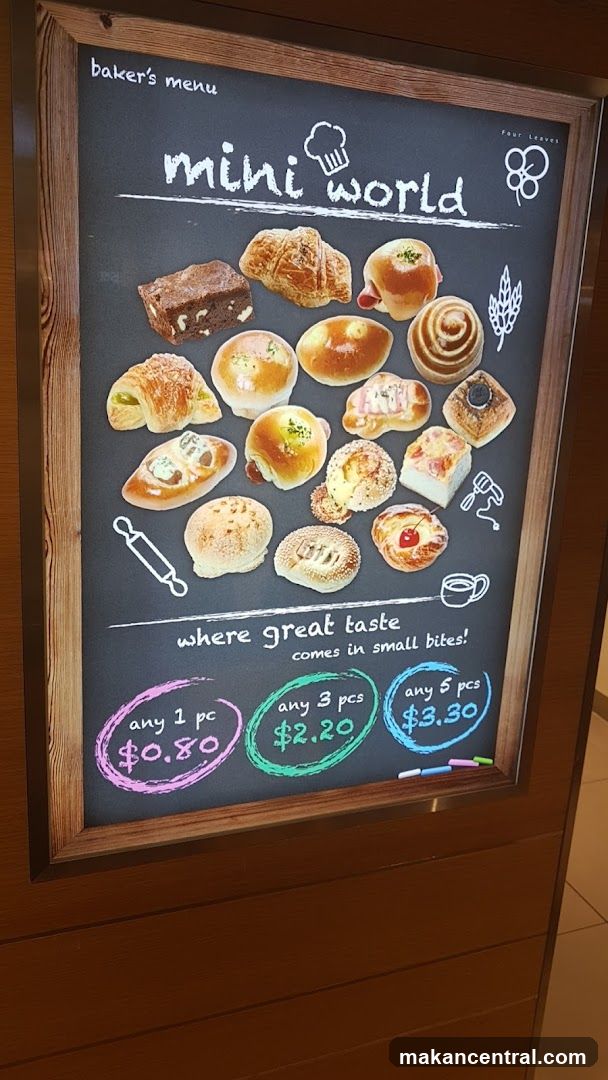 baker's menu
Four Leaves
mini world
where great taste
comes in small bites!
any 1 pc
$0.80
any 3 pcs
$2.20
any 5 pcs
$3.30
makancentral.com